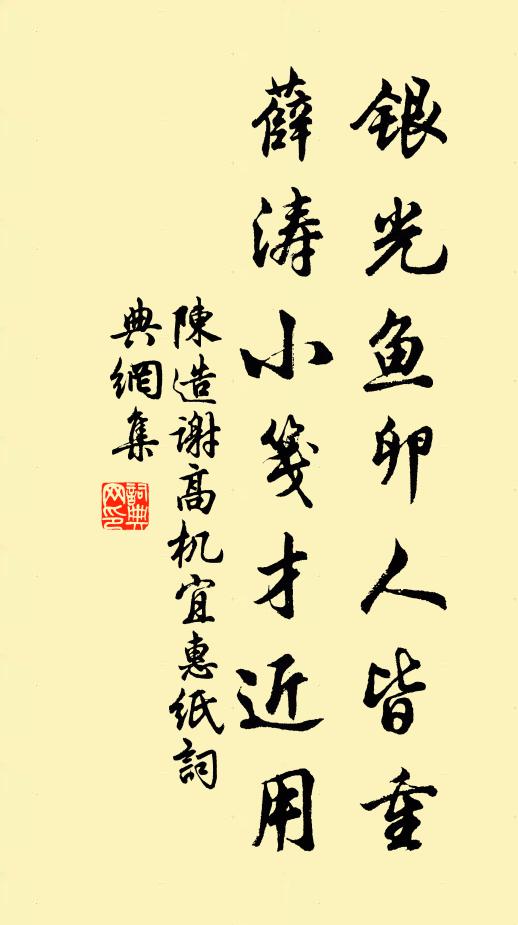 銀光鱼卵人皆重
薛涛小箋才近用
陳造謝高机宜惠紙詞
典網集
詞典
网印